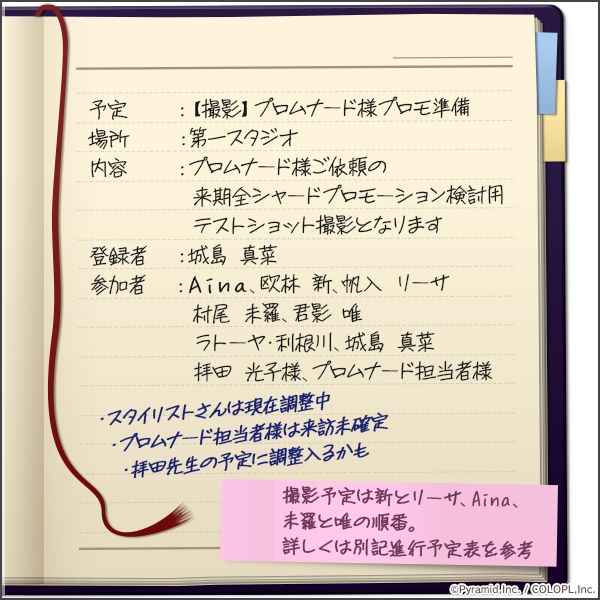 予定 :【撮影】プロムナード様プロモ準備
場所 :第一スタジオ
内容 :プロムナード様ご依頼の
来期全シャードプロモーション検討用
テストショット撮影となります
登録者 :城島 真菜
参加者 :Aina、欧林 新、帆入 リーサ
村尾 未羅、君影 唯
ラトーヤ・利根川、城島 真菜
拝田 光子様、プロムナード担当者様
・スタイリストさんは現在調整中
・プロムナード担当者様は来訪未確定
・拝田先生の予定に調整入るかも
撮影予定は新とリーサ、Aina、
未羅と唯の順番。
詳しくは別記進行予定表を参考
©Pyramid,Inc. / COLOPL,Inc.